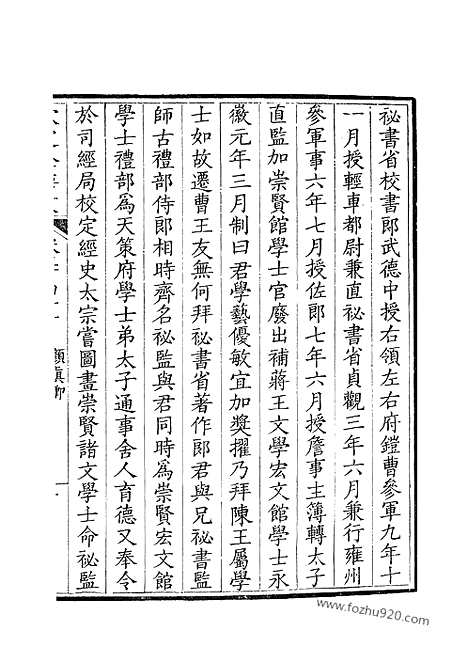 祕書省校書郞武德中授右領左右府鎧曹參軍九年十
一月授輕車都尉兼直祕書省貞觀三年六月兼行雍州
參軍事六年七月授佐郞七年六月授詹事主簿轉太子
直監加崇賢館學士官廢出補蔣王文學宏文館學士永
徽元年三月制曰君學藝優敏宜加獎擢乃拜陳王屬學
士如故遷曹王友無何拜祕書省著作郞君與兄祕書監
師古禮部侍郞相時齊名祕監與君同時爲崇賢宏文館
學士禮部爲天策府學士弟太子通事舍人育德又奉令
於司經局校定經史太宗嘗圖畫崇賢諸文學士命祕監
顏眞卿
www.fozhu920.com